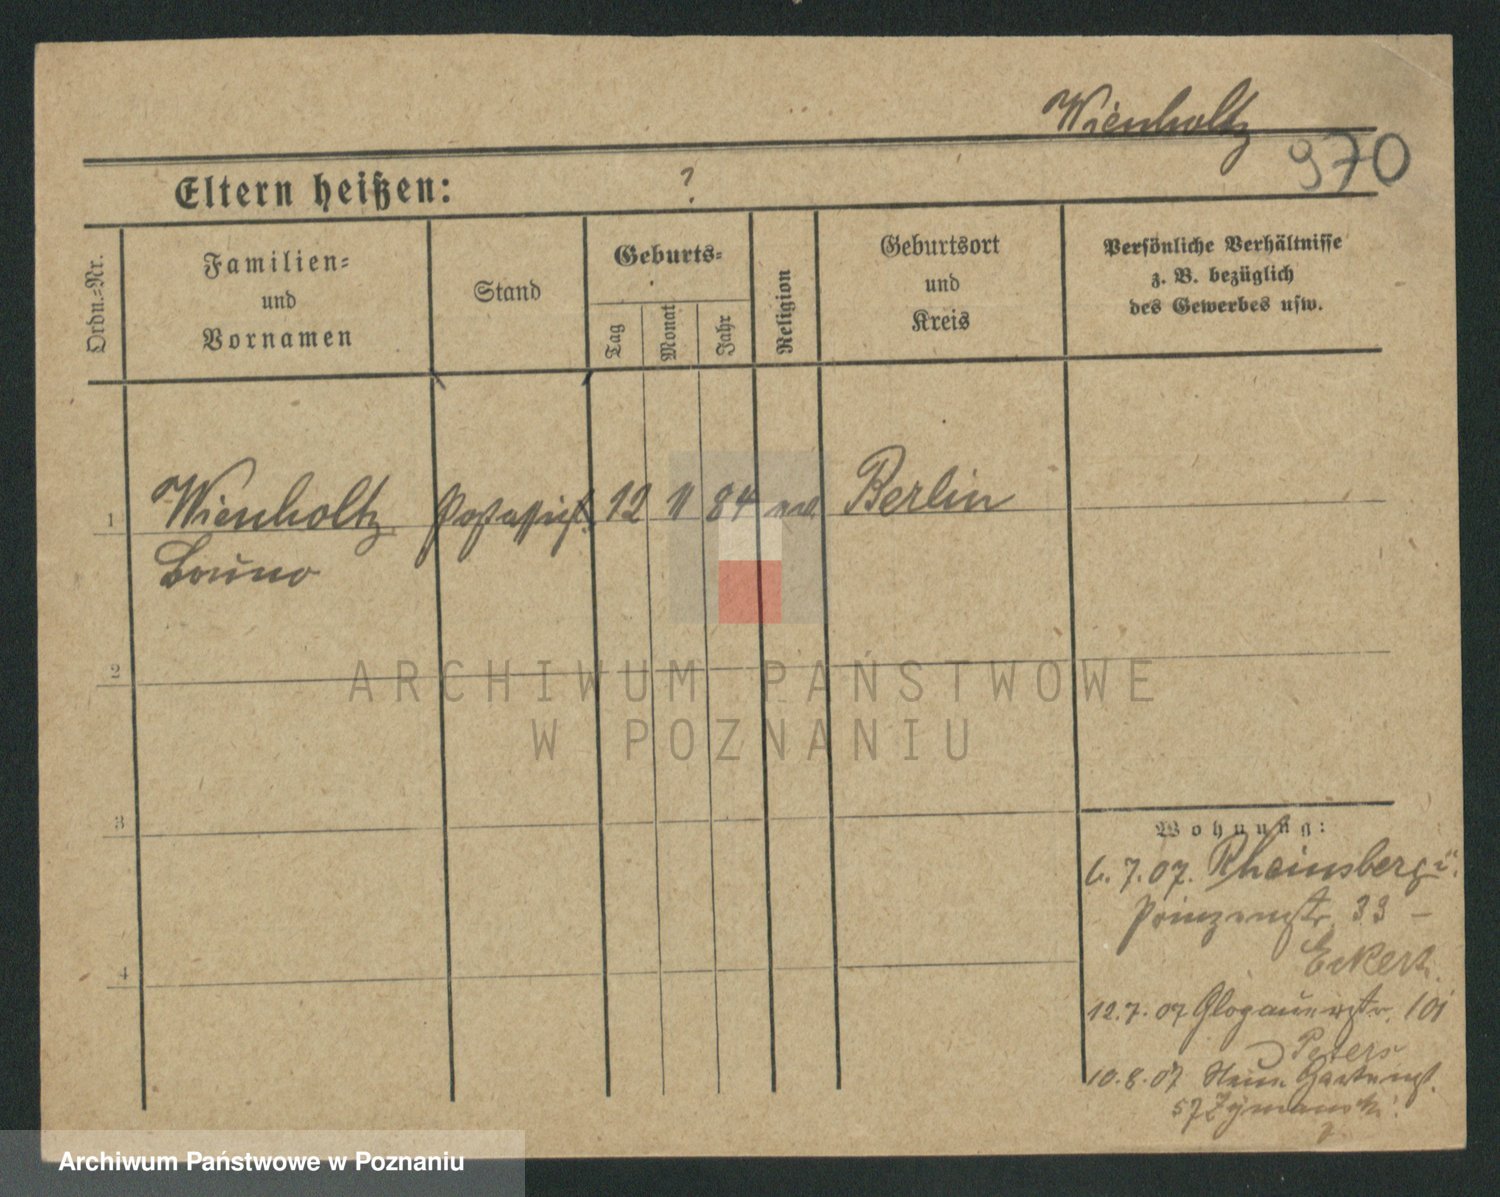 Wienholtz
970
Eltern heißen: ?
Ordn.-Nr.
Familien-
und
Vornamen
Stand
Geburts-
Tag
Monat
Jahr
Religion
Geburtsort
und
Kreis
Persönliche Verhältnisse
z. B. bezüglich
des Gewerbes usw.
1 Wienholtz Postassist. 12 11 84 Berlin
Bruno
2
3
4
Wohnung:
6.7.07. Rheinsberg
Prinzenstr. 33 –
Eckert.
12.7.07 Glogauerstr. 101
Peters
10.8.07 Gartenst.
57 Zymanski
ARCHIWUM PAŃSTWOWE
W POZNANIU
Archiwum Państwowe w Poznaniu